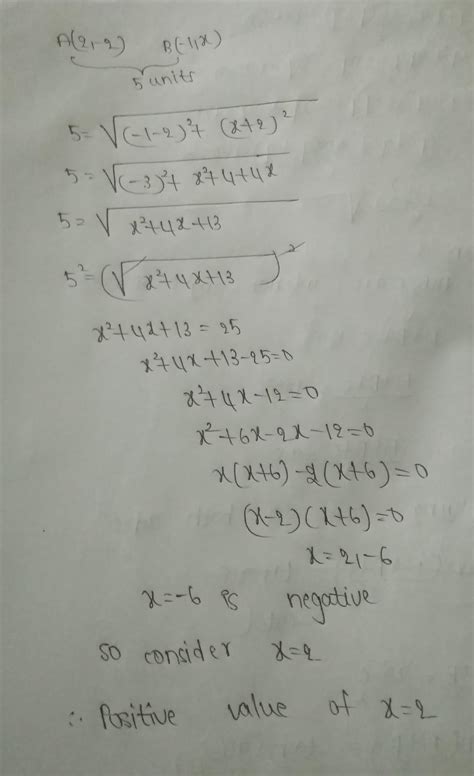 A(2,-2) B(-1,x)
5 units
5 = √(-1-2)²+ (x+2)²
5 = √(-3)²+ x²+4+4x
5 = √x²+4x+13
5² = (√x²+4x+13)²
x²+4x+13 = 25
x²+4x+13-25=0
x²+4x-12=0
x²+6x-2x-12=0
x(x+6)-2(x+6)=0
(x-2)(x+6)=0
x=2,-6
x=-6 is negative
so consider x=2
∴ Positive value of x=2